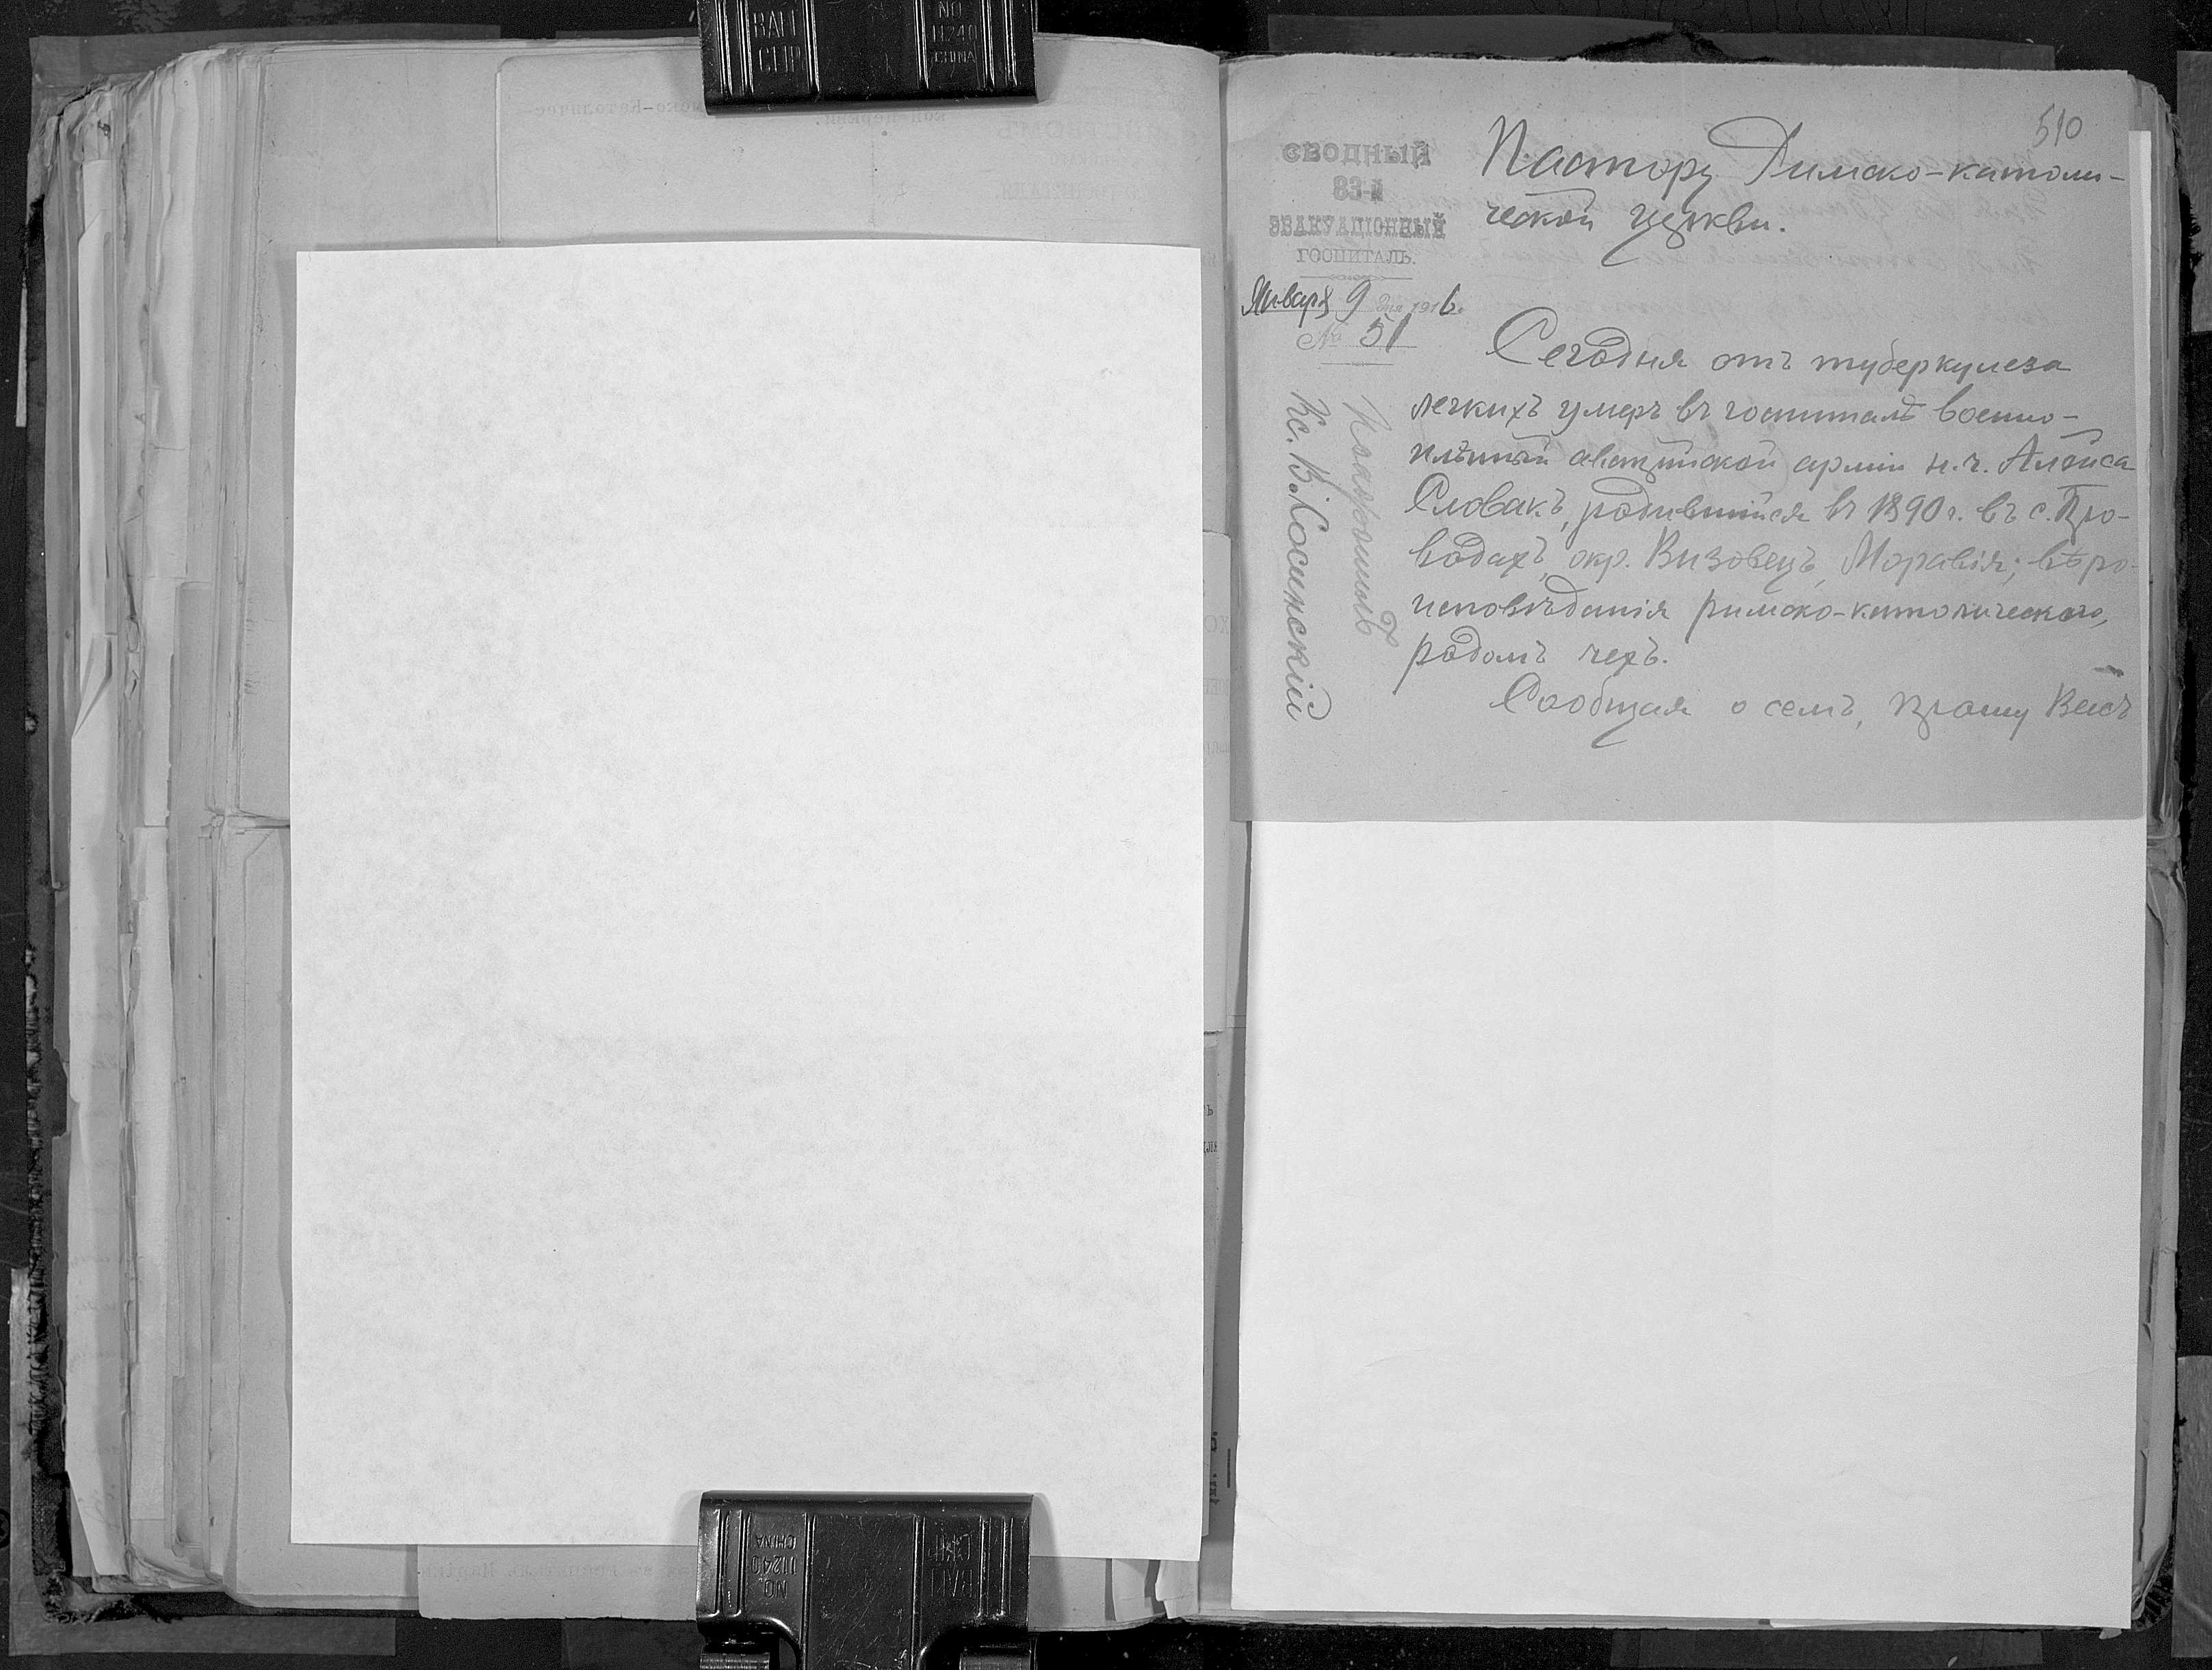 510
СВОДНЫЙ
83-й
ЭВАКУАЦІОННЫЙ
ГОСПИТАЛЬ.
Января 9 дня 1916 г.
№ 51
Пастору Римско-католи-
ческой церкви.
Сегодня отъ туберкулеза
легкихъ умеръ въ госпиталѣ военно-
плѣнный австрійской арміи н.ч. Алоиса
Словакъ, родившійся въ 1890 г. въ с. Про-
водахъ, окр. Визовецъ, Моравія; вѣро-
исповѣданія римско-католическаго,
родомъ чехъ.
Сообщая о семъ, прошу Васъ
Похоронилъ
Кс. В. Косинскій
BALL
CLIP
NO.
11240
CHINA
NO.
11240
CHINA